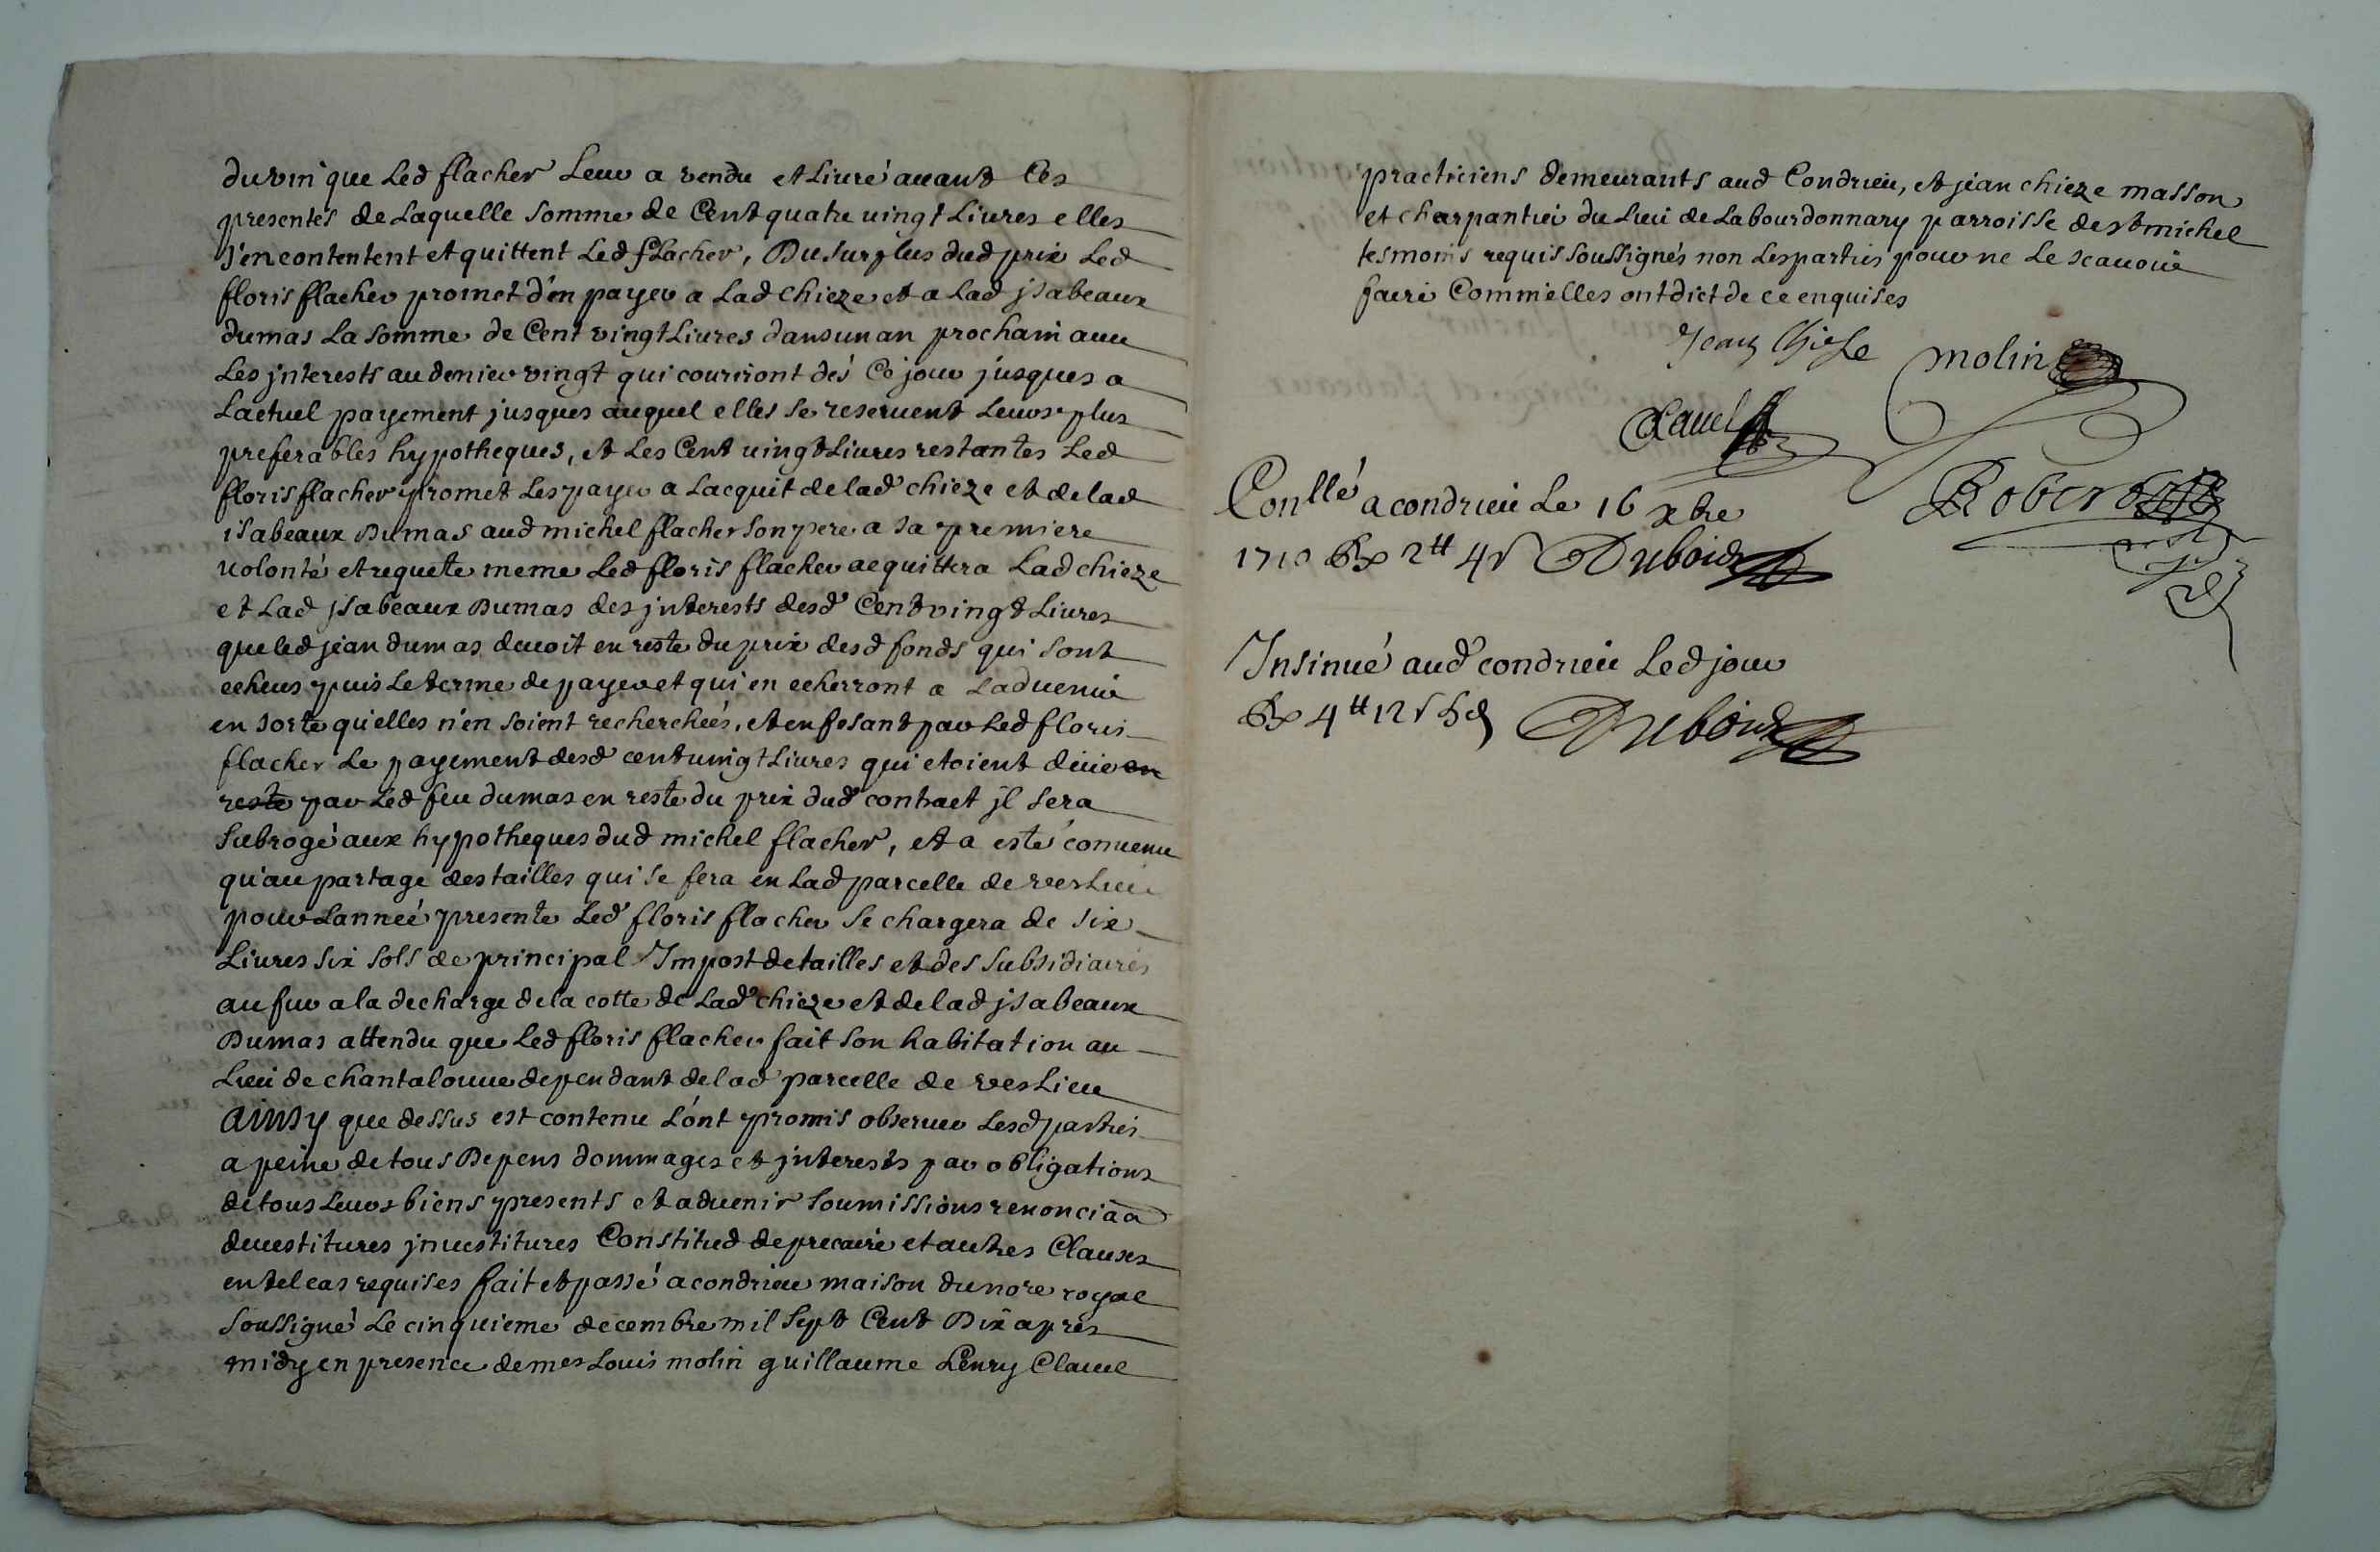 du vin que Led flacher Leur a vendu et Livré auant Ces
presentes de Laquelle somme de Cent quatre uingt Liures elles
s'en contentent et quittent Led flacher, Du surplus dud prix Led
floris flacher promet d'en payer a Lad chieze et a Lad jsabeaux
dumas La somme de Cent vingt Liures dans un an prochain auec
Les jnterests au denier vingt qui couriront dés Ce jour jusques a
Lactuel payement jusques auquel elles se reseruent Leurs plus
preferables hypotheques, et Les Cent uingt Liures restantes Led
floris flacher promet Les payer a Lacquit de lad chieze et de lad
isabeaux Dumas aud michel flacher son pere a sa premiere
uolonté et requete meme Led floris flacher acquittera Lad chieze
et Lad jsabeaux Dumas des jnterests desd Cent vingt Liures
que led jean dumas deuoit en reste du prix desd fonds qui sont
echeus puis Le terme de payer et qui en echerront a Laduenir
en sorte qu'elles n'en soient recherchées, et en fesant par Led floris
flacher Le payement desd cent uingt Liures qui etoient deüe en
reste par Led feu dumas en reste du prix dud contract jl sera
subrogé aux hypotheques dud michel flacher, et a esté conuenu
qu'au partage des tailles qui se fera en Lad parcelle de verlieu
pour Lanneé presente Led floris flacher se chargera de six
Liures six sols de principal Impost de tailles et des subsidiaires
au fur a la decharge de la cotte de Lad chieze et de lad jsabeaux
Dumas attendu que Led floris flacher fait son habitation au
Lieu de chantaloune dependant de lad parcelle de verlieu
Ainsy que dessus est contenu L'ont promis obseruer Lesd parties
a peine de tous Depens dommages et jnterests par obligations
de tous Leurs biens presents et aduenir soumissions renonciãõ
deuestitures jnuestitures Constitud de precaire et autres Clauses
en tel cas requises fait et passé a condrieu maison du nore royal
soussigné Le cinquieme decembre mil sept Cent Dix apres
midy en presence de mes Louis molin guillaume henry Clauel
practiciens demeurants aud Condrieu, et jean chieze masson
et charpantier du Lieu de Labourdonnary parroisse de st michel
tesmoins requis soussignés non Les parties pour ne Le scauoir
faire Comm'elles ont dict de ce enquises
Jean Chiese molin
Clauel
Robert
Conllé a condrieu Le 16 xbre
1710 Rx 2tt 4s Dubois
Insinué aud condrieu Led jour
Rx 4tt 12s 5d Dubois